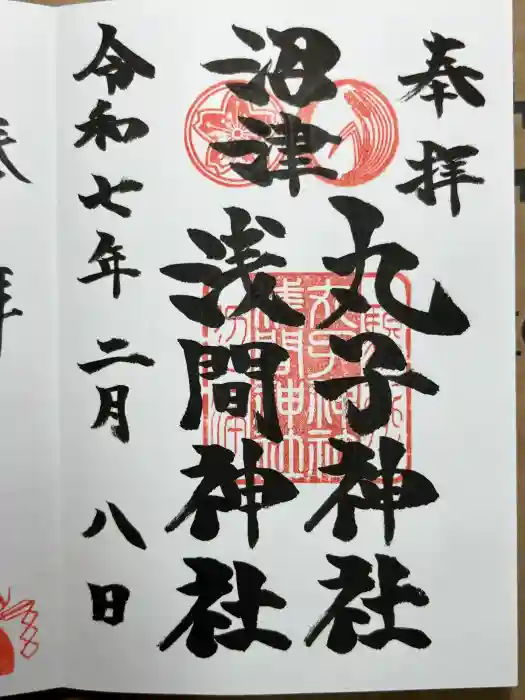 奉拝
沼津
丸子神社
浅間神社
令和七年二月八日